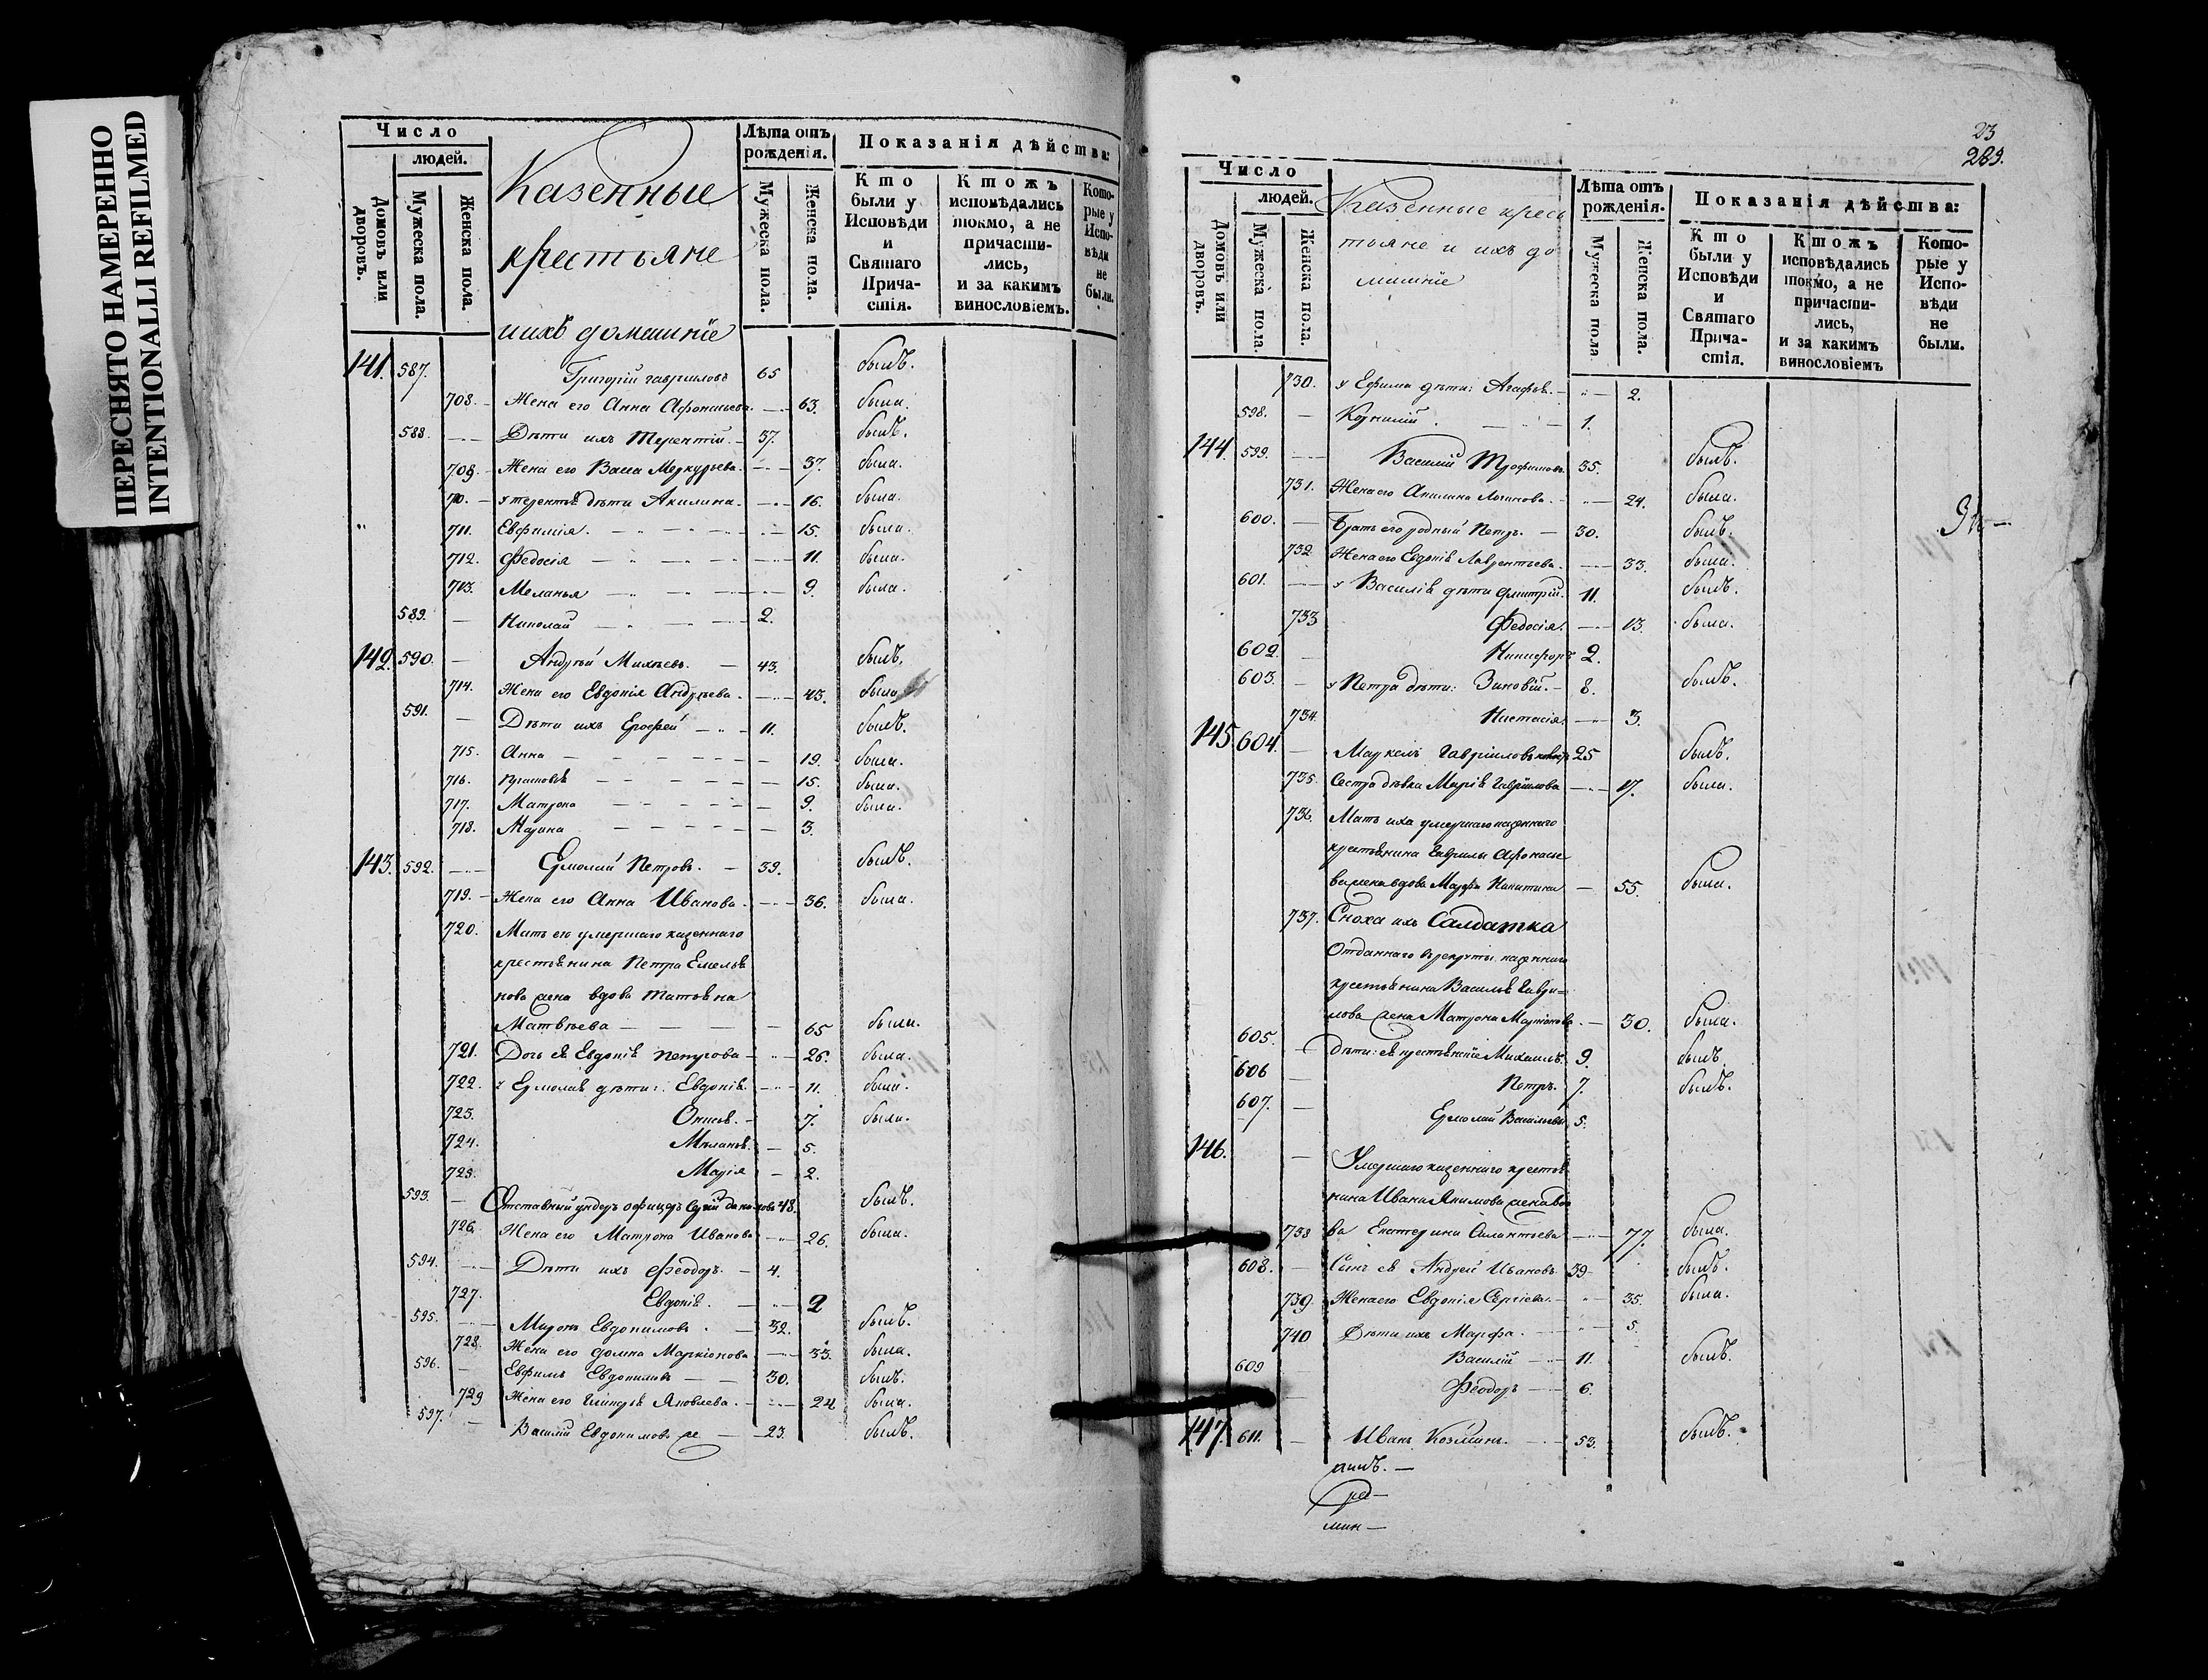 ПЕРЕСНЯТО НАМЕРЕННО
INTENTIONALLI REFILMED
Число
людей.
Домовъ или дворовъ.
Мужеска пола.
Женска пола.
Казенные
крестьяне
и ихъ домашнiе
Лѣта отъ рожденiя.
Мужеска пола.
Женска пола.
Показанiя дѣйства:
Кто были у Исповѣди и Святаго Прича-стiя.
Ктожъ исповѣдались токмо, а не причасти-лись, и за какимъ винословiемъ.
Кото-рые у Испо-вѣди не были.
141. 587. Григорiй Гавриловъ 65 былъ.
708. Жена его Анна Афонасьева 63. была.
588. Дѣти ихъ Терентiй 37. былъ.
709. Жена его Васса Меркурьева 37. была.
710. у Терентья дѣти Акилина 16. была.
711. Евфимiя 15. была.
712. Федосiя 11. была.
713. Меланья 9. была.
589. Николай 2.
142. 590. Андрѣй Михѣевъ 43. былъ.
714. Жена его Евдокiя Андрѣева 43. была
591. Дѣти ихъ Ерофей 11. былъ.
715. Анна 19. была.
716. 15. была.
717. Матрона 9. была.
718. Марина 3.
143. 592. Ермолай Петровъ 39. былъ.
719. Жена его Анна Иванова 36. была.
720. Мать его умершаго казеннаго
крестьянина Петра Емелья
нова жена вдова Татьяна
Матвѣева 65 была.
721. Дочь ея Евдокiя Петрова 26. была.
722. у Ермолая дѣти: Евдокiя 11. была.
723. 7. была.
724. Меланья 5.
725. Марiя 2.
593. Отставный ундеръ офицеръ 48. былъ.
726. Жена его Матрона Иванова 26. была.
594. Дѣти ихъ Феодоръ 4.
727. Евдокiя 2
595. Миронъ Евдокимовъ 32. былъ.
728. Жена его Домна Маркiонова 33. была.
596. Евфимъ Евдокимовъ 30. былъ.
729 Жена его Яковлева 24. была.
597. Василiй Евдокимовъ 23. былъ.
23
289.
Число
людей.
Домовъ или дворовъ.
Мужеска пола.
Женска пола.
Казенные кресь
тьяне и ихъ до
машнiе
Лѣта отъ рожденiя.
Мужеска пола
Женска пола.
Показанiя дѣйства:
Кто были у Исповѣди и Святаго Прича-стiя.
Ктожъ исповѣдались токмо, а не причасти-лись, и за какимъ винословiемъ
Кото-рые у Испо-вѣди не были.
730. у Ефима дѣти: Агафья 2.
598. Корнилiй 1.
144. 599. Василiй Трофимовъ 35. былъ.
731. Жена его Акилина Логинова 24. была.
600. Братъ его родный Петръ 30. былъ.
732. Жена его Евдокiя Лаврентьева 33. была.
601. у Василiя дѣти Дмитрiй 11. былъ.
733 Федосiя 13. была.
602. Никифоръ 2.
603. у Петра дѣти: Зиновiй 8. былъ.
734. Настасiя 3.
145. 604. Маркелъ Гавриловъ 25 былъ.
735. Сестра дѣвка Марiя Гаврилова 17. была.
736. Мать ихъ умершаго казеннаго
крестьянина Гаврилы Афонасье
ва жена вдова Марфа Никитина 55. была.
737. Сноха ихъ Салдатка
Отданнаго в рекруты казеннаго
крестьянина Василья Гаври=
лова жена Матрона Маркiонова 30. была.
605. дѣти: ея крестьянскiе Михаилъ 9. былъ
606 Петръ 7. былъ.
607. Ермолай Васильевы 5.
146. Умершаго казеннаго крестья
нина Ивана Якимова жена вдо
738 ва Екатерина Силантьева 77. была.
608. Сынъ ея Андрей Ивановъ 39 былъ.
739. Жена его Евдокiя Сергiева 35. была.
740 Дѣти ихъ Марфа 5.
609 Василiй 11. былъ.
Феодоръ 6.
147. 611. Иванъ Козминъ 53. былъ.